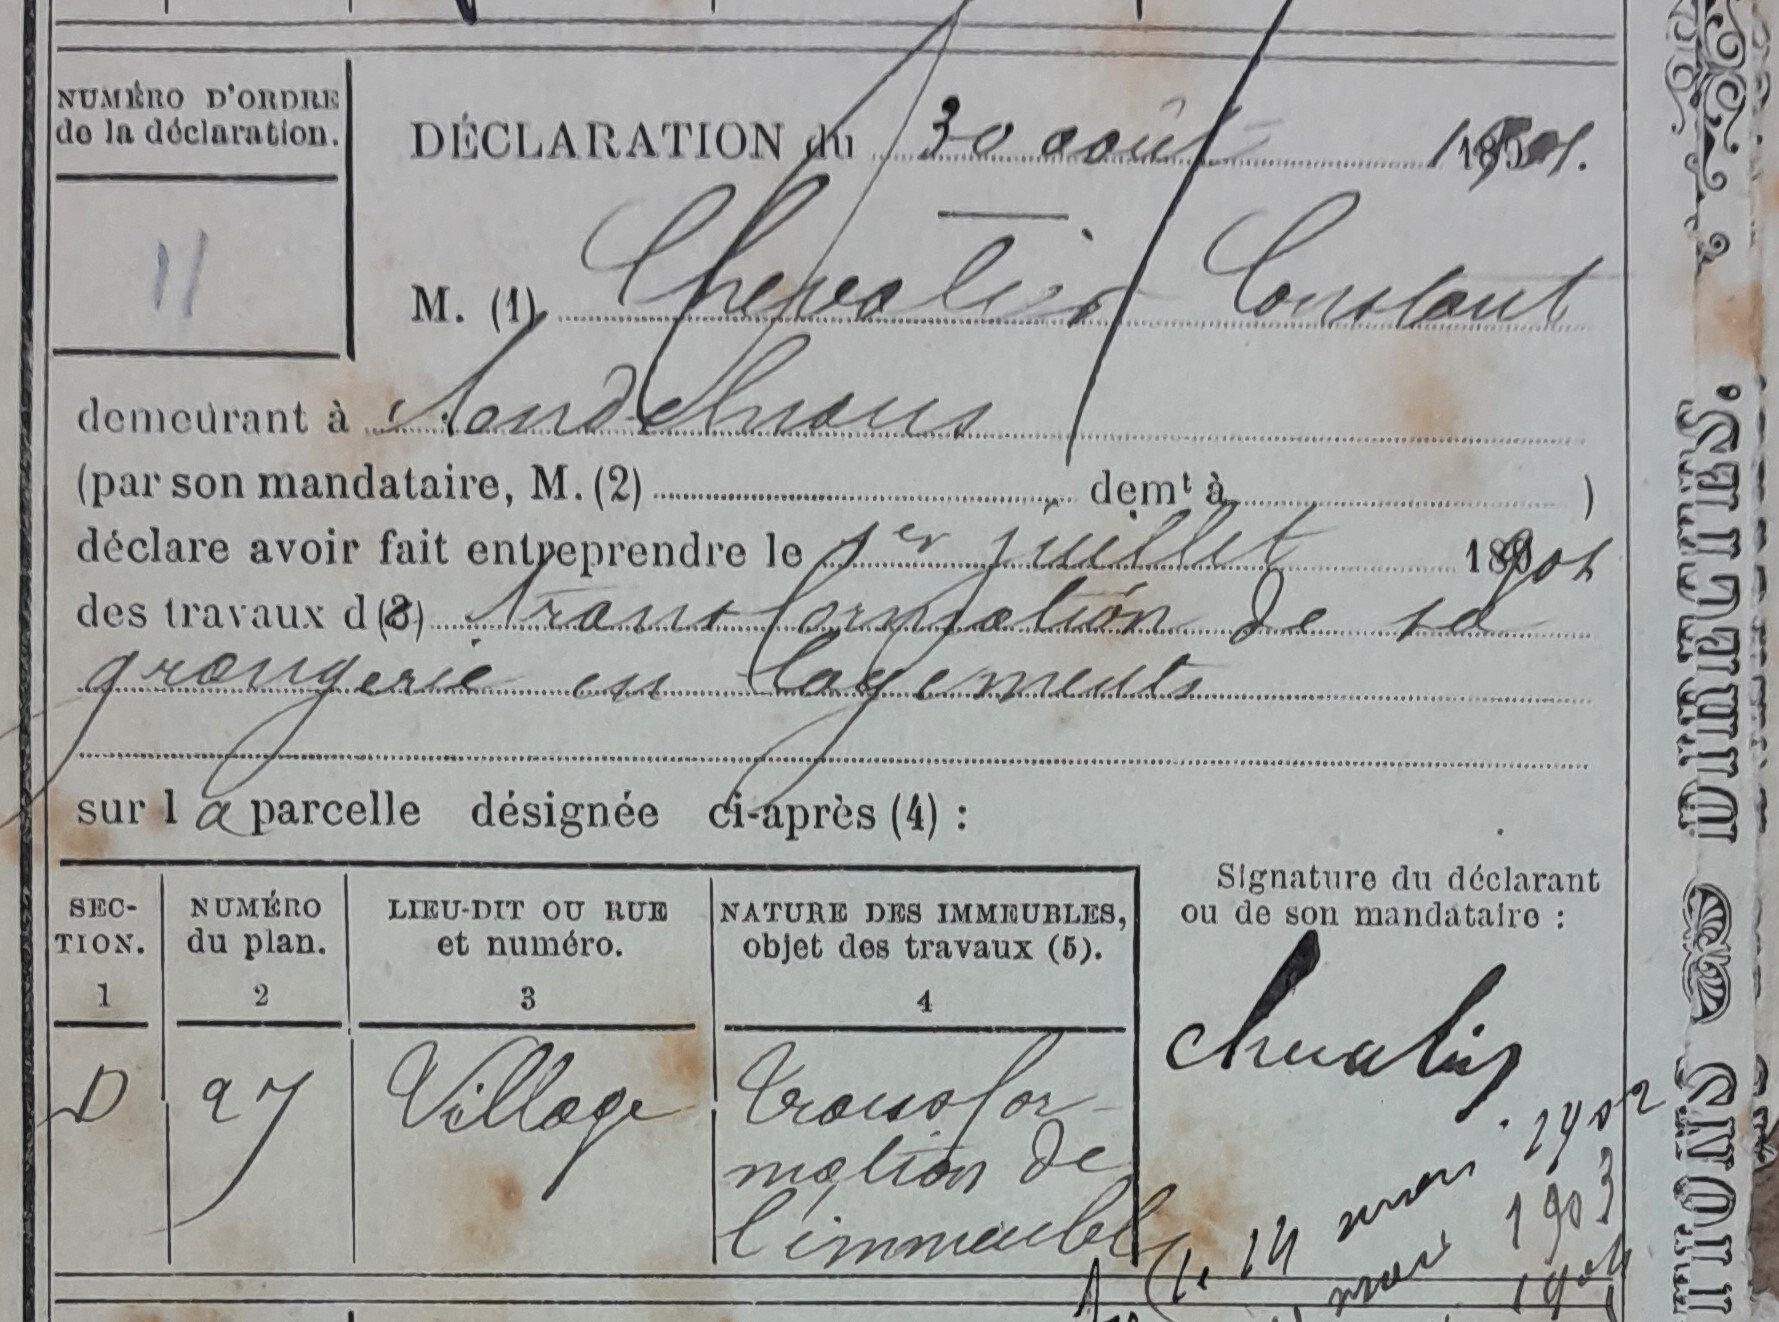 NUMÉRO D'ORDRE
de la déclaration.
11
DÉCLARATION du 30 août 1901.
M. (1) Chevalier Constant
demeurant à
(par son mandataire, M. (2) demt à )
déclare avoir fait entreprendre le 1er juillet 1901
des travaux d (3) transformation de sa
grangerie en logements
sur la parcelle désignée ci-après (4) :
Signature du déclarant
ou de son mandataire :
SEC-
TION.
1
NUMÉRO
du plan.
2
LIEU-DIT OU RUE
et numéro.
3
NATURE DES IMMEUBLES,
objet des travaux (5).
4
D
97
Village
transfor-
mation de
l'immeuble
Chevalier
1902
le 14 mai 1903
mai 1904